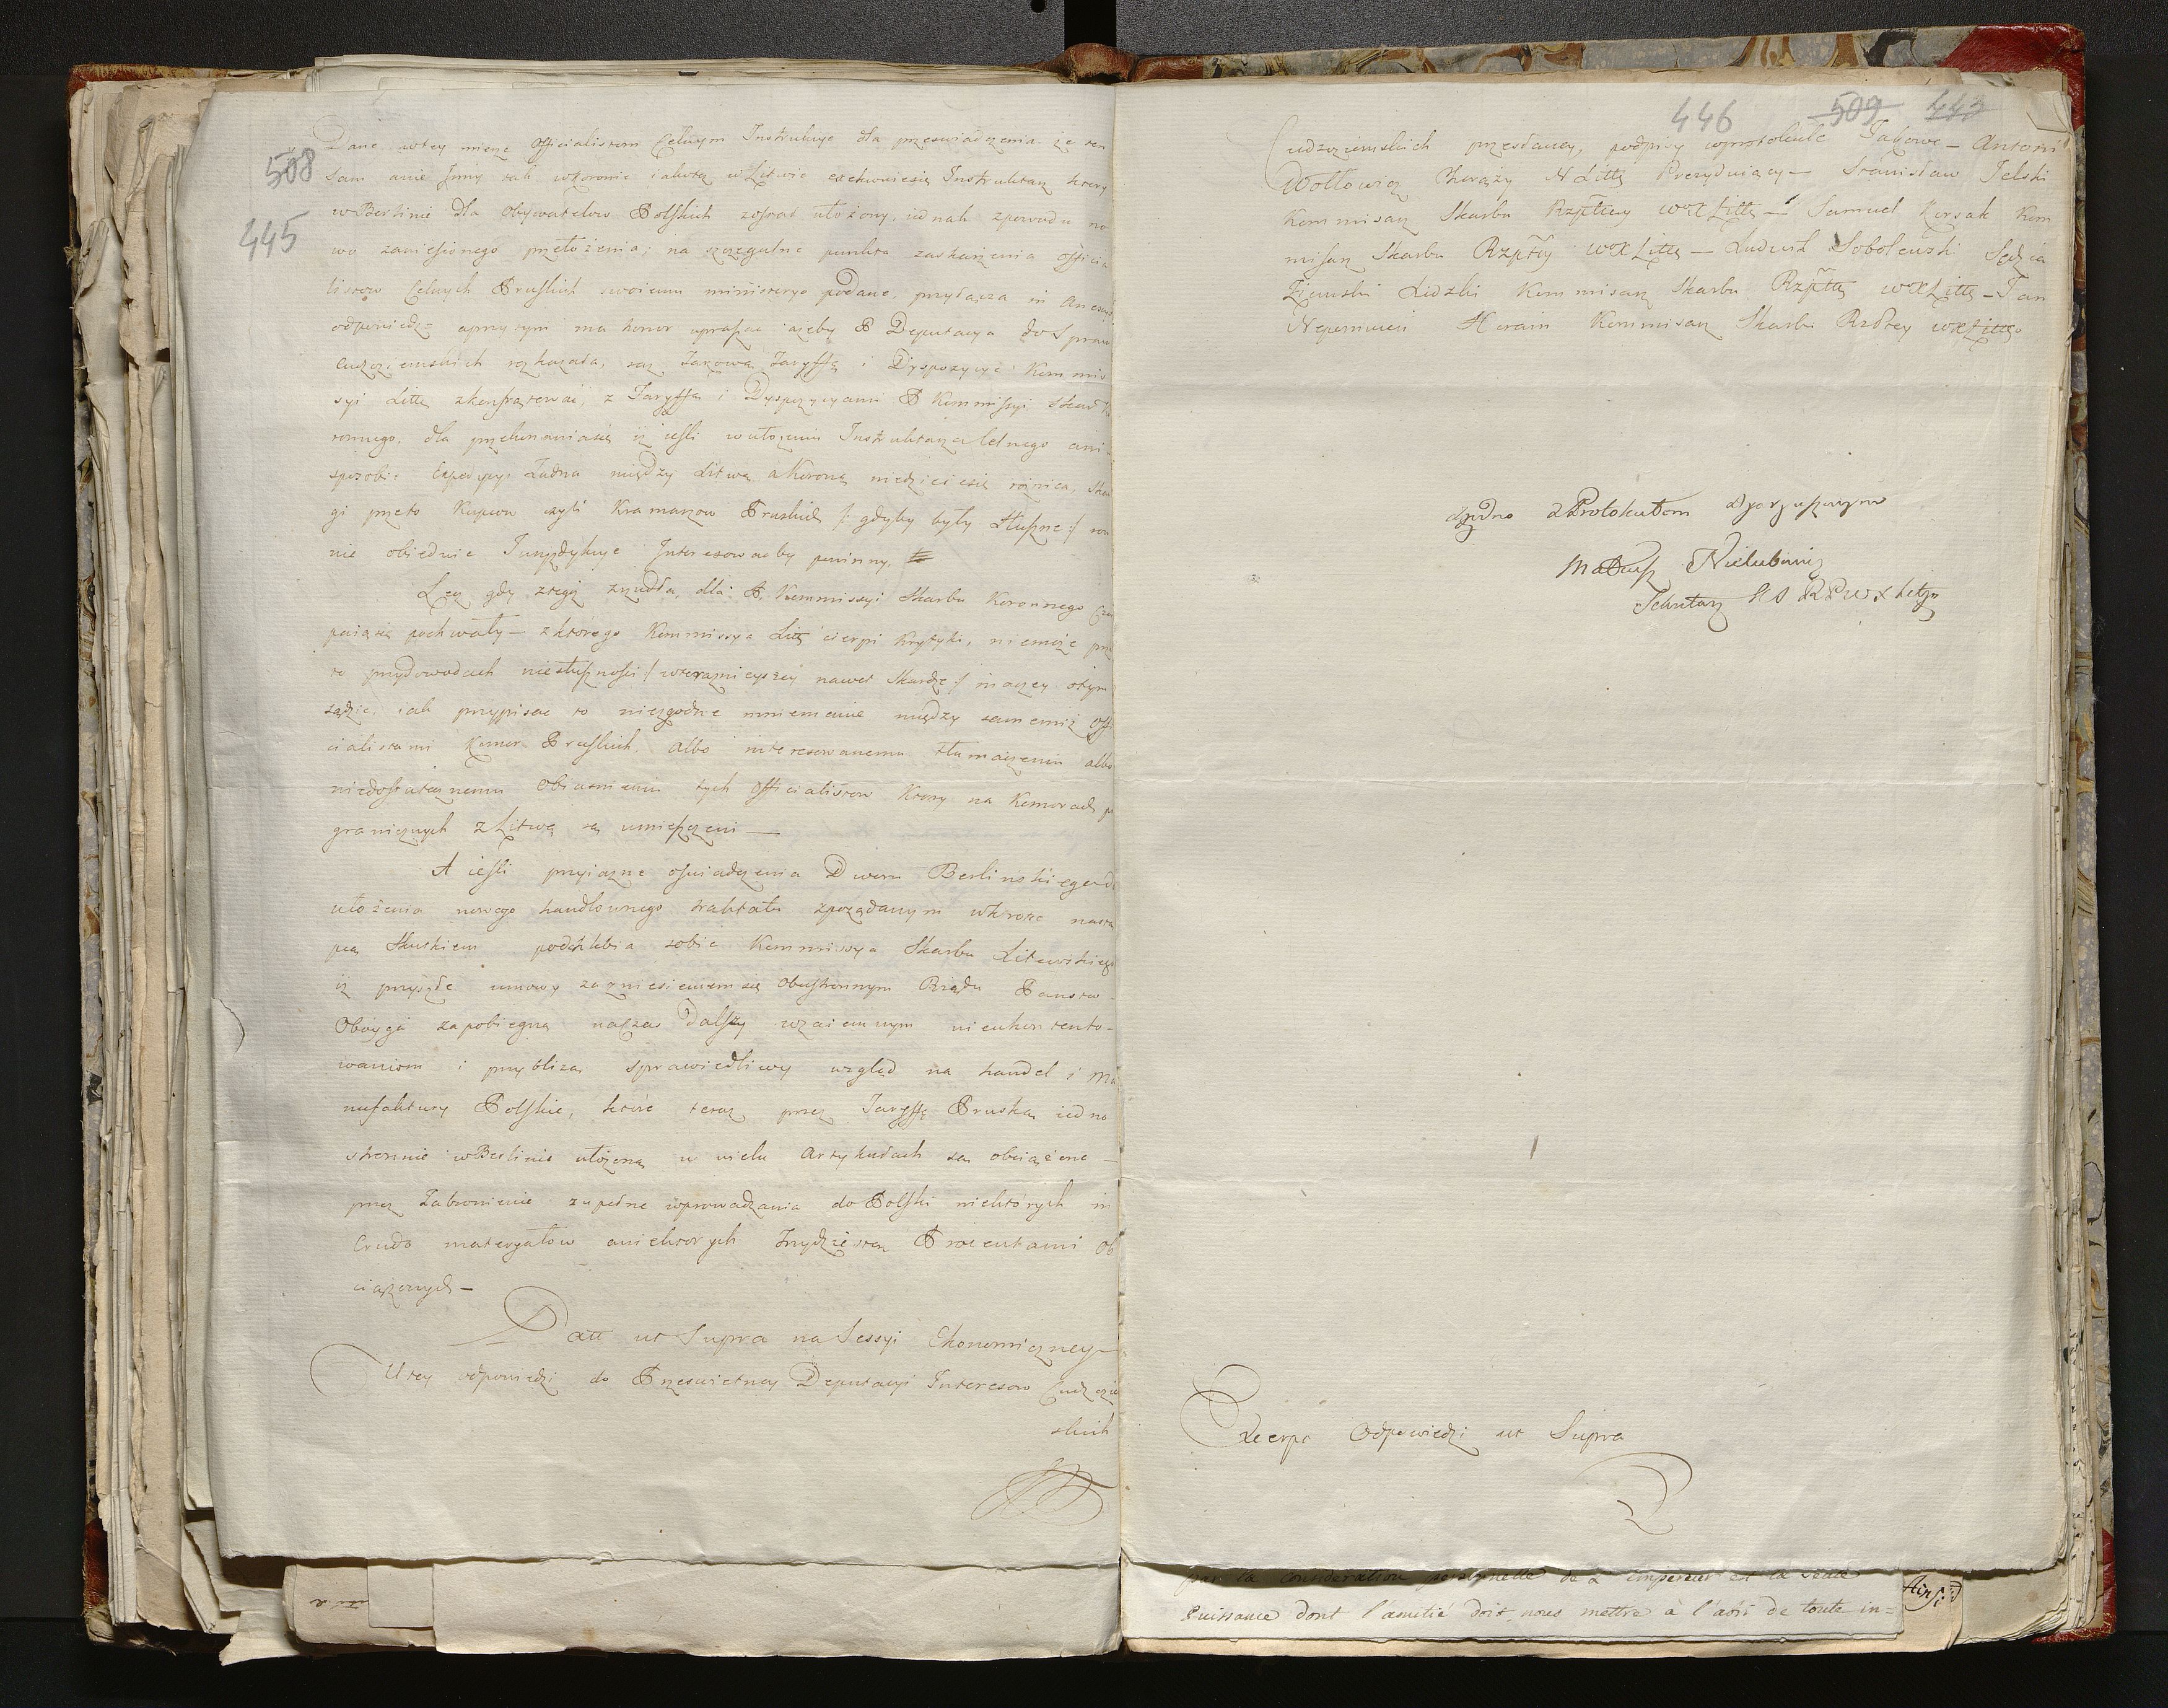 508
445
Dane w tey mierze Officialistom Celnym Instrukcye dla przeswiadczenia że ten
sam a nie Inny tak w Koronie iako też w Litwie exekwuie się Instruktarz ktory
w Berlinie dla Obywatelow Polskich został ułożony, iednak z powodu no
wo zaniesionego przełożenia; na szczegulne punkta zaskarżenia Officia
listow Celnych Pruskich swoiemu ministeryo podane, przyłącza in Anexis
odpowiedz= a przytym ma honor upraszać ażeby P Deputacya do Spraw
Cudzoziemskich rozkazała, raz Takową Taryffę i Dyspozycye Kommis
syi Litt: zkonfrątować, z Taryffą i Dyspozycyami P Kommissyi Skarbu Ko
ronnego, dla przekonania się iż ieśli w ułożeniu Instruktarza Celnego ani
sposobie Expedycyi Żadna między Litwą a Koroną niedzieie się rożnica, Skar
gi przeto Kupcow czyli Kramarzow Pruskich /: gdyby były słuszne :/ row
nie obiedwie Juryzdykcye Interesowaćby powinny.
Lecz gdy z tegoż zrzudła, dla P. Kommissyi Skarbu Koronnego Czer
paią się pochwały – z ktorego Kommissya Litt: cierpi Krytyki, niemoże prze
to przy dowodach niesłuszności /: w teraznieyszey nawet Skardze :/ inaczey o tym
sądzić, iak przypisać to niezgodne mniemanie między samemiż Offi
cialistami Komor Pruskich, albo interesowanemu tłumaczeniu albo
niedostatecznemu obiasnieniu tych Officialistow Ktorzy na Komorach po
granicznych z Litwą są umieszczeni —
A ieśli przyiazne oświadczenia Dworu Berlinskiego do
ułożenia nowego handlownego traktatu z pożądanym wkrotce nastą
pią Skutkiem, podchlebia sobie Kommissya Skarbu Litewskiego
iż przyszłe umowy za zniesieniem się obustronnym Rządu Panstw
Oboyga zapobiegną na czas dalszy wzaiemnym nieukontento-
waniom i przybliżą sprawiedliwy wzgląd na handel i Ma
nufaktury Polskie, które teraz przez Taryffę Pruską iedno
stronnie w Berlinie ułożoną w wielu Artykułach są obciążone —
przez Zabronienie zupełne wprowadzania do Polski niektórych in
Crudo materyałow a niektorych Trzydziestą Procentami ob
ciążonych —
Datt ut Supra na Sessyi Ekonomiczney
U tey odpowiedzi do Prześwietney Deputacyi Interesow Cudzoziem
skich
446 509 443
Cudzoziemskich przesłaney, podpisy w protokule Takowe – Antoni
Wołłowicz Chorąży N Litt: Prezyduiący – Stanisław Jelski
Kommisarz Skarbu Rzpltey WXLitt: – Samuel Korsak Kom
misarz Skarbu Rzpltey WXLitt: – Ludwik Sobolewski Sędzia
Ziemski Lidzki Kommisarz Skarbu Rzpltey WXLitt: – Jan
Nepomucen Horain Kommisarz Skarbu Rzpltey WXLittgo
Zgodno z Protokułem
Mateusz
Sekretarz
Excerpt Odpowiedzi ut Supra
par la considération personnelle de L'Empereur est la seule
Puissance dont l'amitié doit nous mettre à l'abri de toute in=